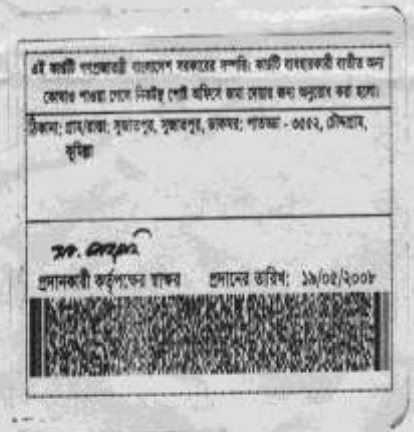 এই কার্ডটি গণপ্রজাতন্ত্রী বাংলাদেশ সরকারের সম্পত্তি। কার্ডটি ব্যবহারকারী ব্যতীত অন্য
কোথাও পাওয়া গেলে নিকটস্থ পোষ্ট অফিসে জমা দেয়ার জন্য অনুরোধ করা হলো।
ঠিকানা: গ্রাম/রাস্তা: সুজাতপুর, সুজাতপুর, ডাকঘর: পাতড্ডা - ৩৫৫২, চৌদ্দগ্রাম,
কুমিল্লা
প্রদানকারী কর্তৃপক্ষের স্বাক্ষর প্রদানের তারিখ: ১৯/০৫/২০০৮